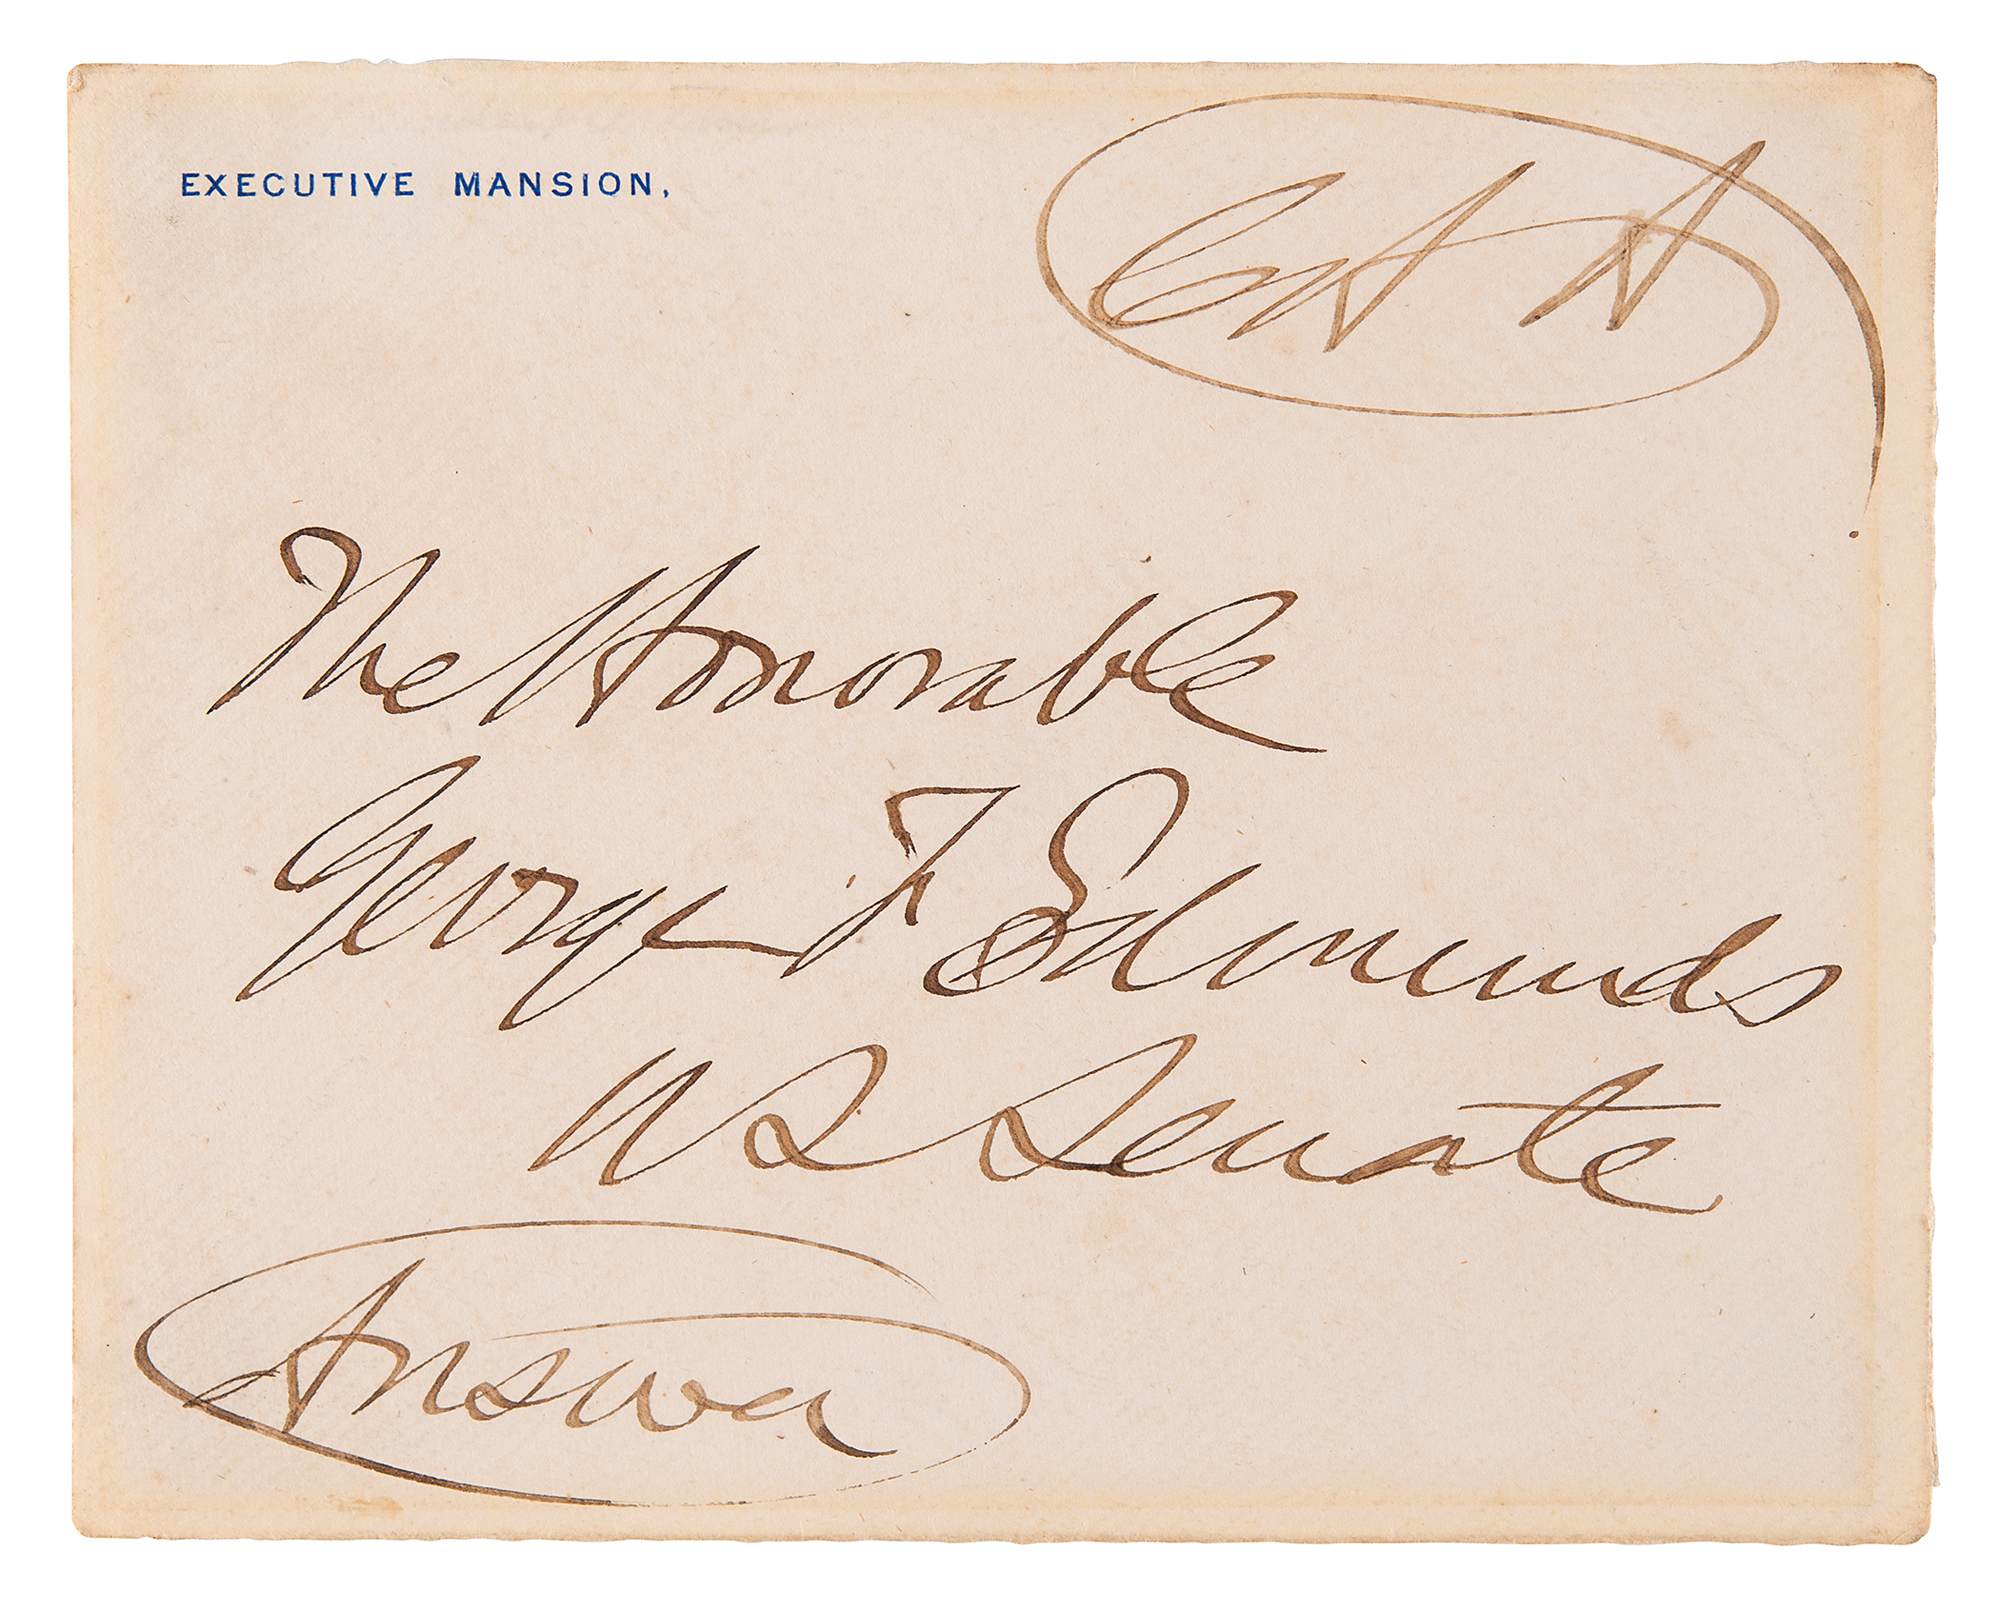 EXECUTIVE MANSION,
The Honorable
George F Edmunds
US Senate
Answer